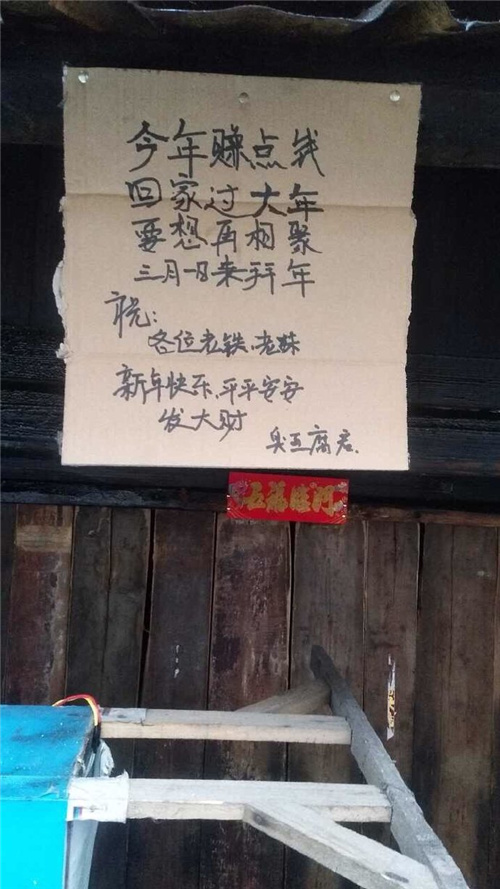 今年赚点钱
回家过大年
要想再相聚
三月一日来拜年
祝:
各位老铁、老妹
新年快乐,平平安安
发大财
臭豆腐君.
五福临门